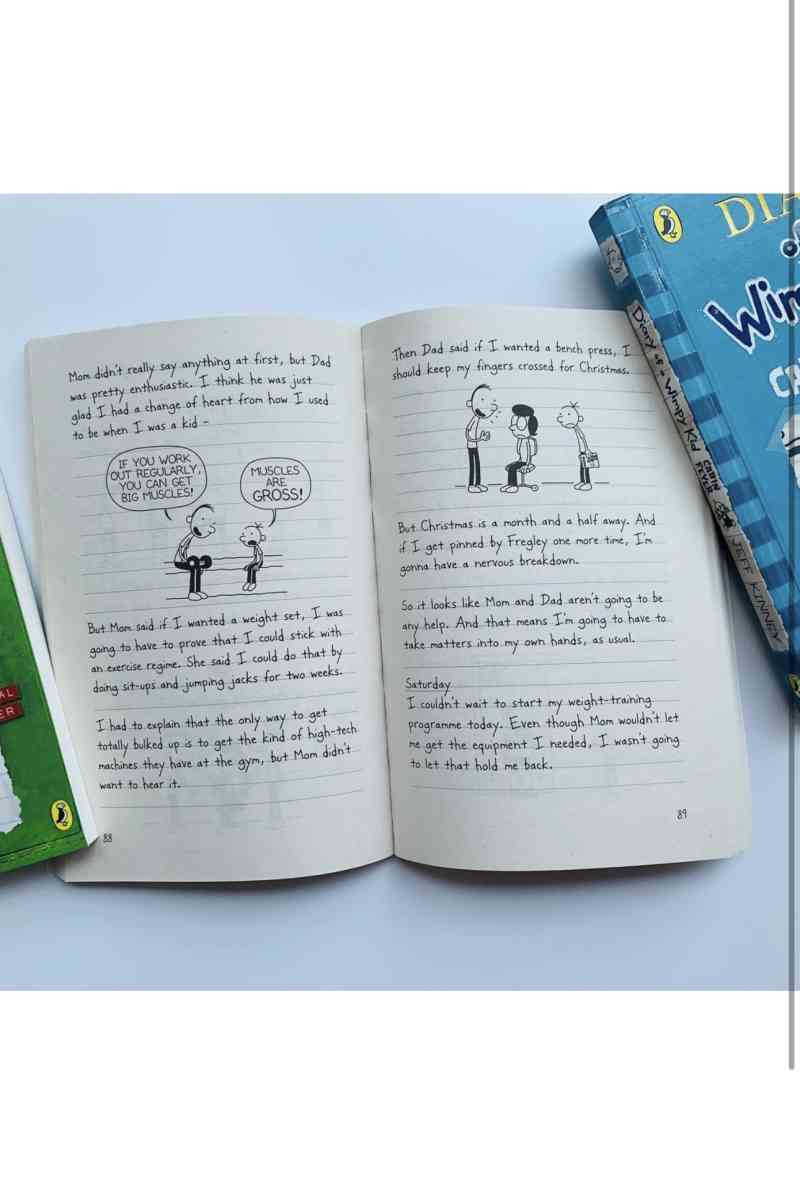 Mom didn't really say anything at first, but Dad
was pretty enthusiastic. I think he was just
glad I had a change of heart from how I used
to be when I was a kid -
IF YOU WORK
OUT REGULARLY,
YOU CAN GET
BIG MUSCLES!
MUSCLES
ARE
GROSS!
But Mom said if I wanted a weight set, I was
going to have to prove that I could stick with
an exercise regime. She said I could do that by
doing sit-ups and jumping jacks for two weeks.
I had to explain that the only way to get
totally bulked up is to get the kind of high-tech
machines they have at the gym, but Mom didn't
want to hear it.
88
Then Dad said if I wanted a bench press, I
should keep my fingers crossed for Christmas.
But Christmas is a month and a half away. And
if I get pinned by Fregley one more time, I'm
gonna have a nervous breakdown.
So it looks like Mom and Dad aren't going to be
any help. And that means I'm going to have to
take matters into my own hands, as usual.
Saturday
I couldn't wait to start my weight-training
programme today. Even though Mom wouldn't let
me get the equipment I needed, I wasn't going
to let that hold me back.
89
Diary of a Wimpy Kid CABIN FEVER JEFF KINNEY
DIA
of
Wim
CA
AL
ER